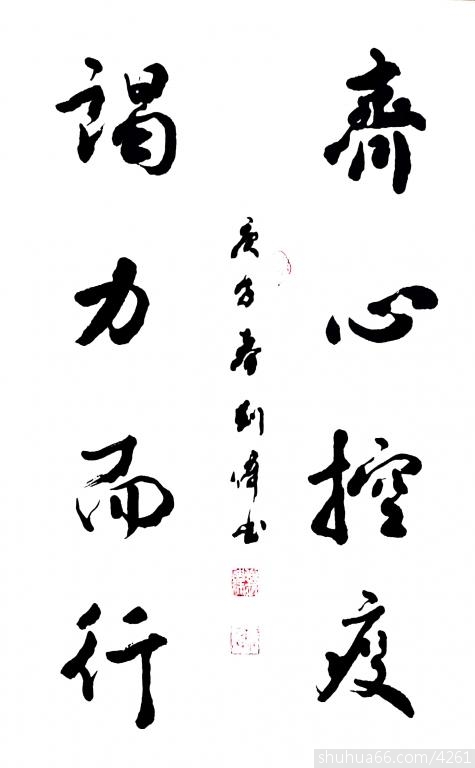 齊心控疫
竭力而行
庚子春刘偉书
shuhua66.com/4261